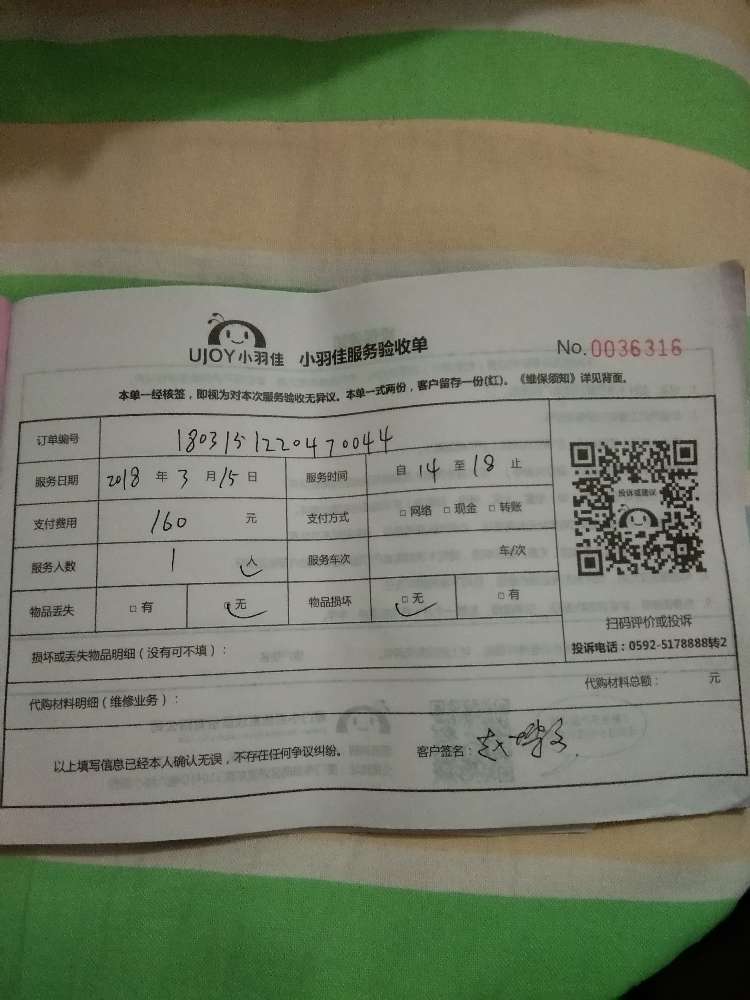 UJOY小羽佳 小羽佳服务验收单 No.0036316
本单一经核签，即视为对本次服务验收无异议。本单一式两份，客户留存一份(红)。《维保须知》详见背面。
订单编号 1803151220470044
服务日期 2018 年 3 月 15 日 服务时间 自 14 至 18 止
支付费用 160 元 支付方式 □ 网络 □ 现金 □ 转账
服务人数 1 人 服务车次 车/次
投诉或建议
物品丢失 □ 有 □ 无 物品损坏 □ 无 □ 有
扫码评价或投诉
投诉电话：0592-5178888转2
损坏或丢失物品明细（没有可不填）：
代购材料明细（维修业务）： 代购材料总额： 元
以上填写信息已经本人确认无误，不存在任何争议纠纷。 客户签名：